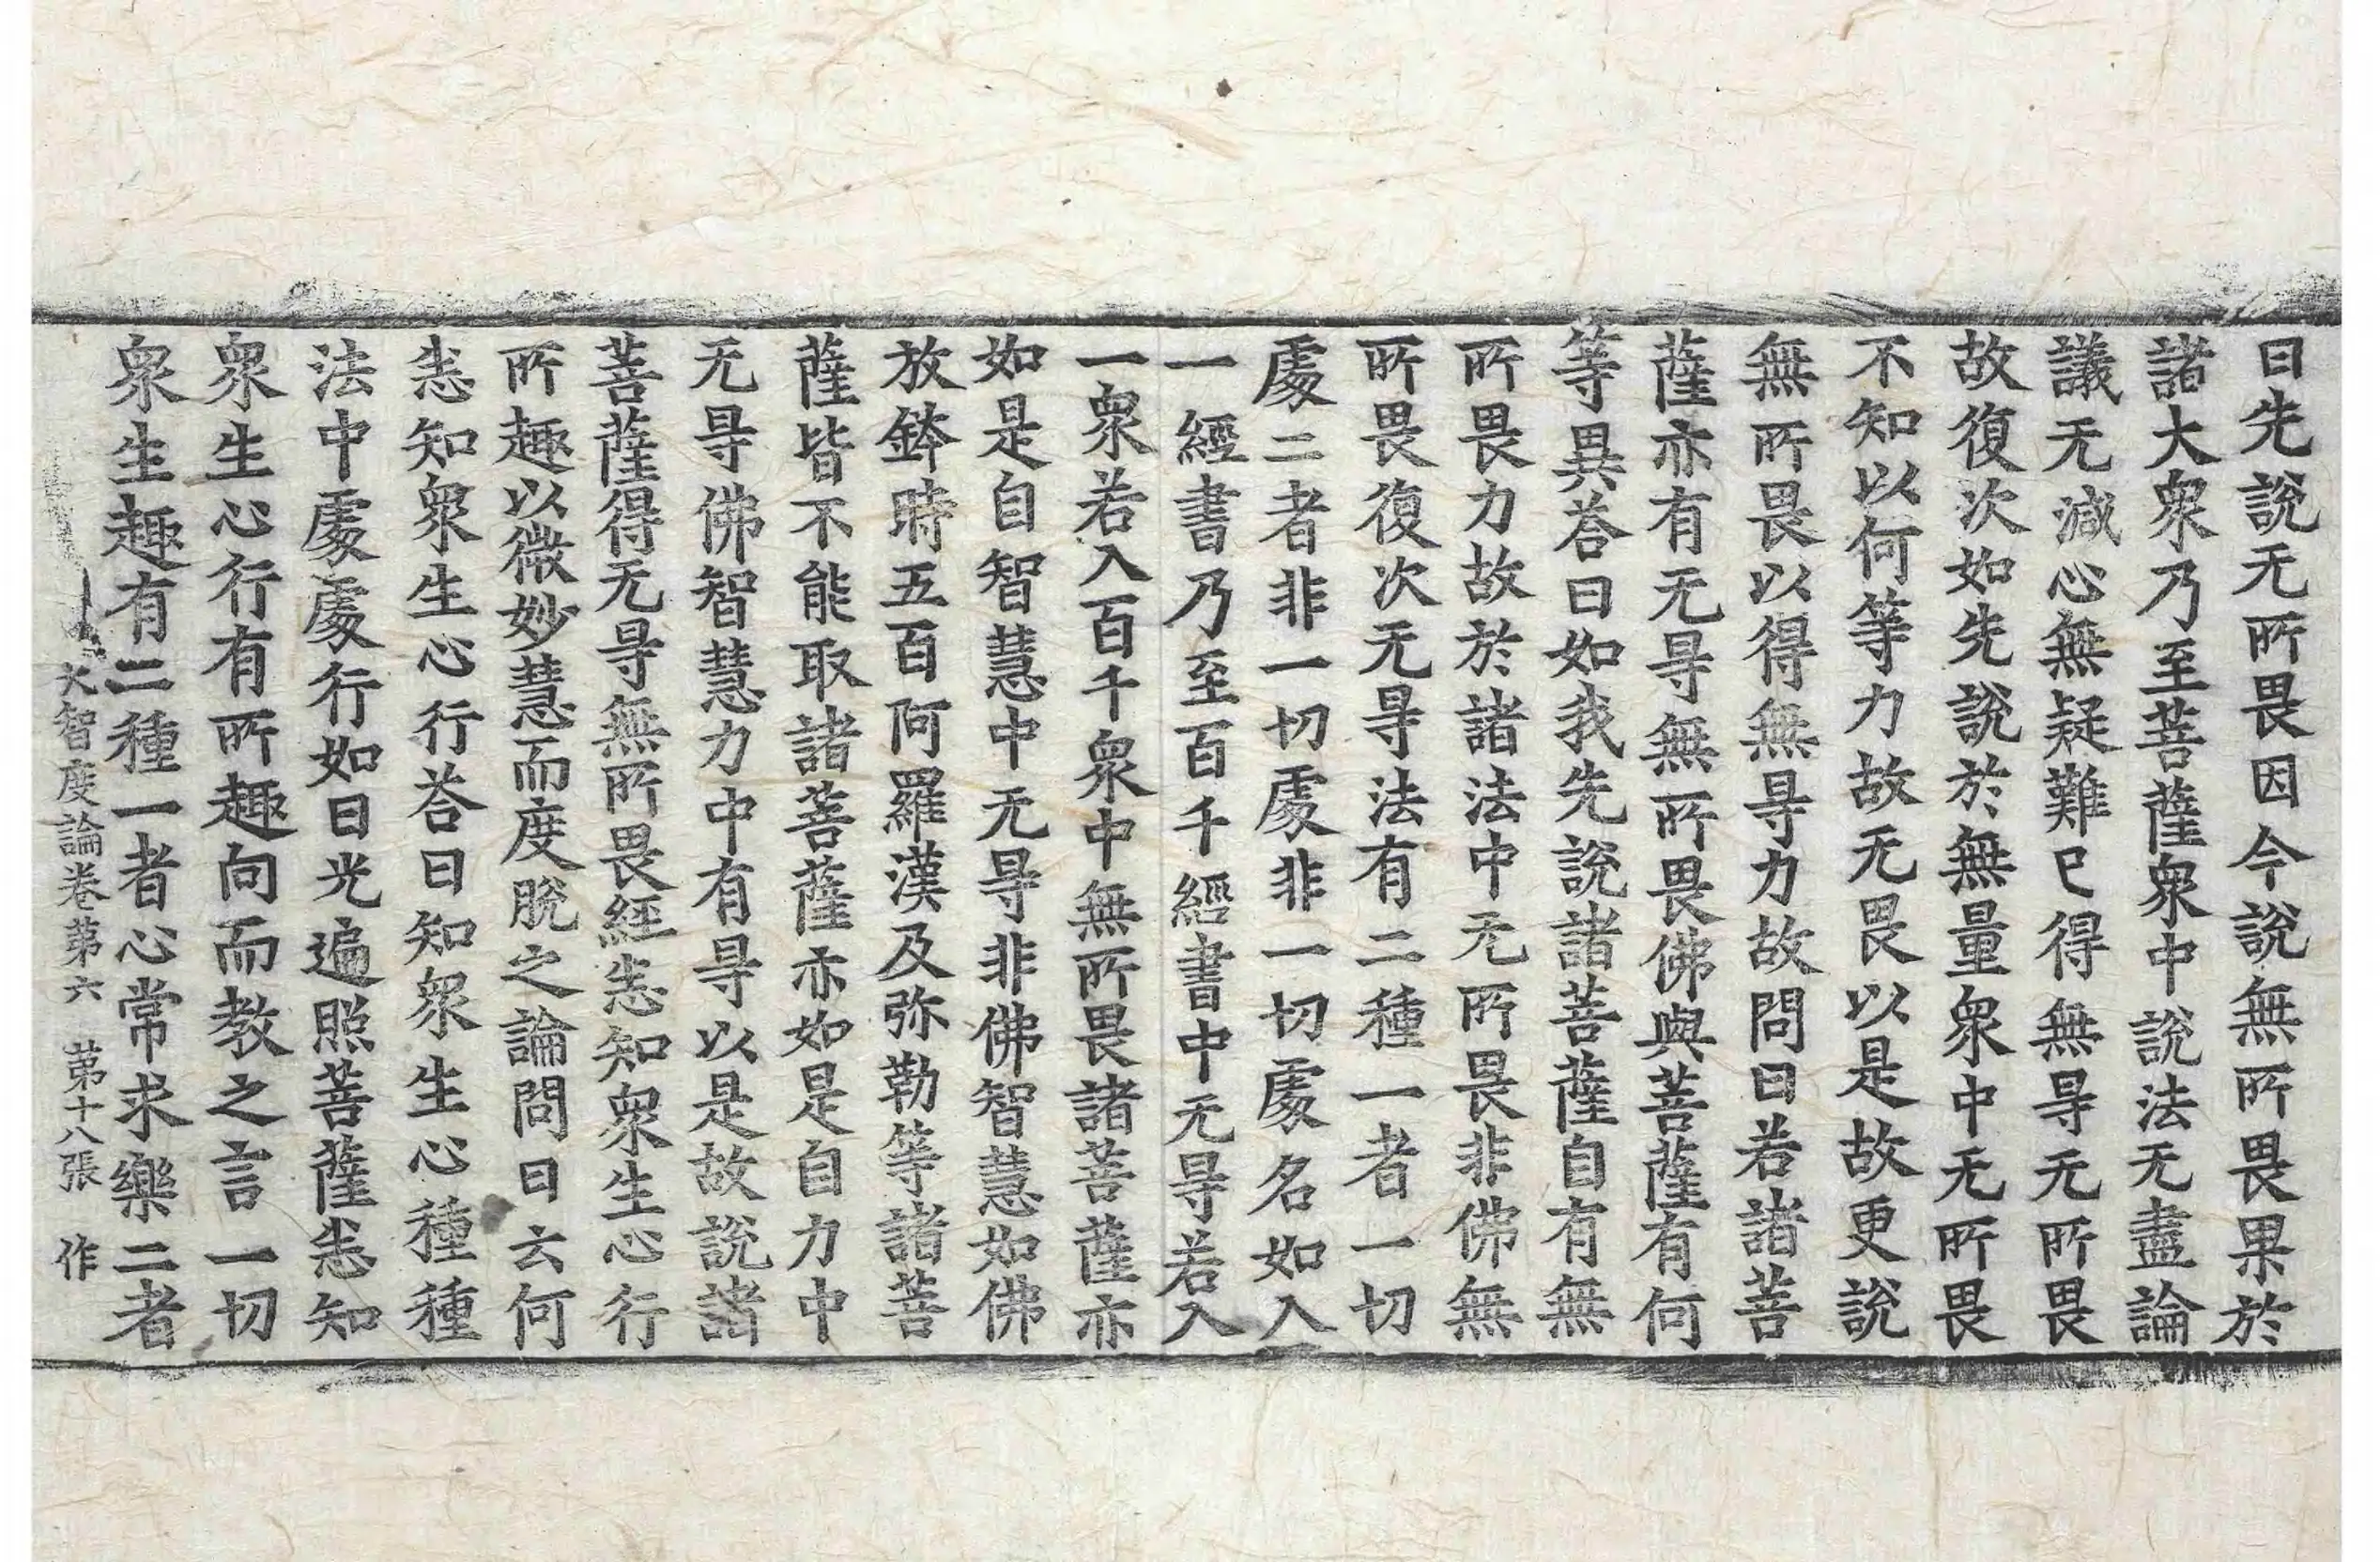 曰先說无所畏因今說無所畏果於
諸大衆乃至菩薩衆中說法无盡論
議无減心無疑難已得無㝵无所畏
故復次如先說於無量衆中无所畏
不知以何等力故无畏以是故更說
無所畏以得無㝵力故問曰若諸菩
薩亦有无㝵無所畏佛與菩薩有何
等異荅曰如我先說諸菩薩自有無
所畏力故於諸法中无所畏非佛無
所畏復次无㝵法有二種一者一切
處二者非一切處非一切處名如入
一經書乃至百千經書中无㝵若入
一衆若入百千衆中無所畏諸菩薩亦
如是自智慧中无㝵非佛智慧如佛
放鉢時五百阿羅漢及弥勒等諸菩
薩皆不能取諸菩薩亦如是自力中
无㝵佛智慧力中有㝵以是故說諸
菩薩得无㝵無所畏經悉知衆生心行
所趣以微妙慧而度脫之論問曰云何
悉知衆生心行荅曰知衆生心種種
法中處處行如日光遍照菩薩悉知
衆生心行有所趣向而教之言一切
衆生趣有二種一者心常求樂二者
大智度論卷第六 第十八張 作